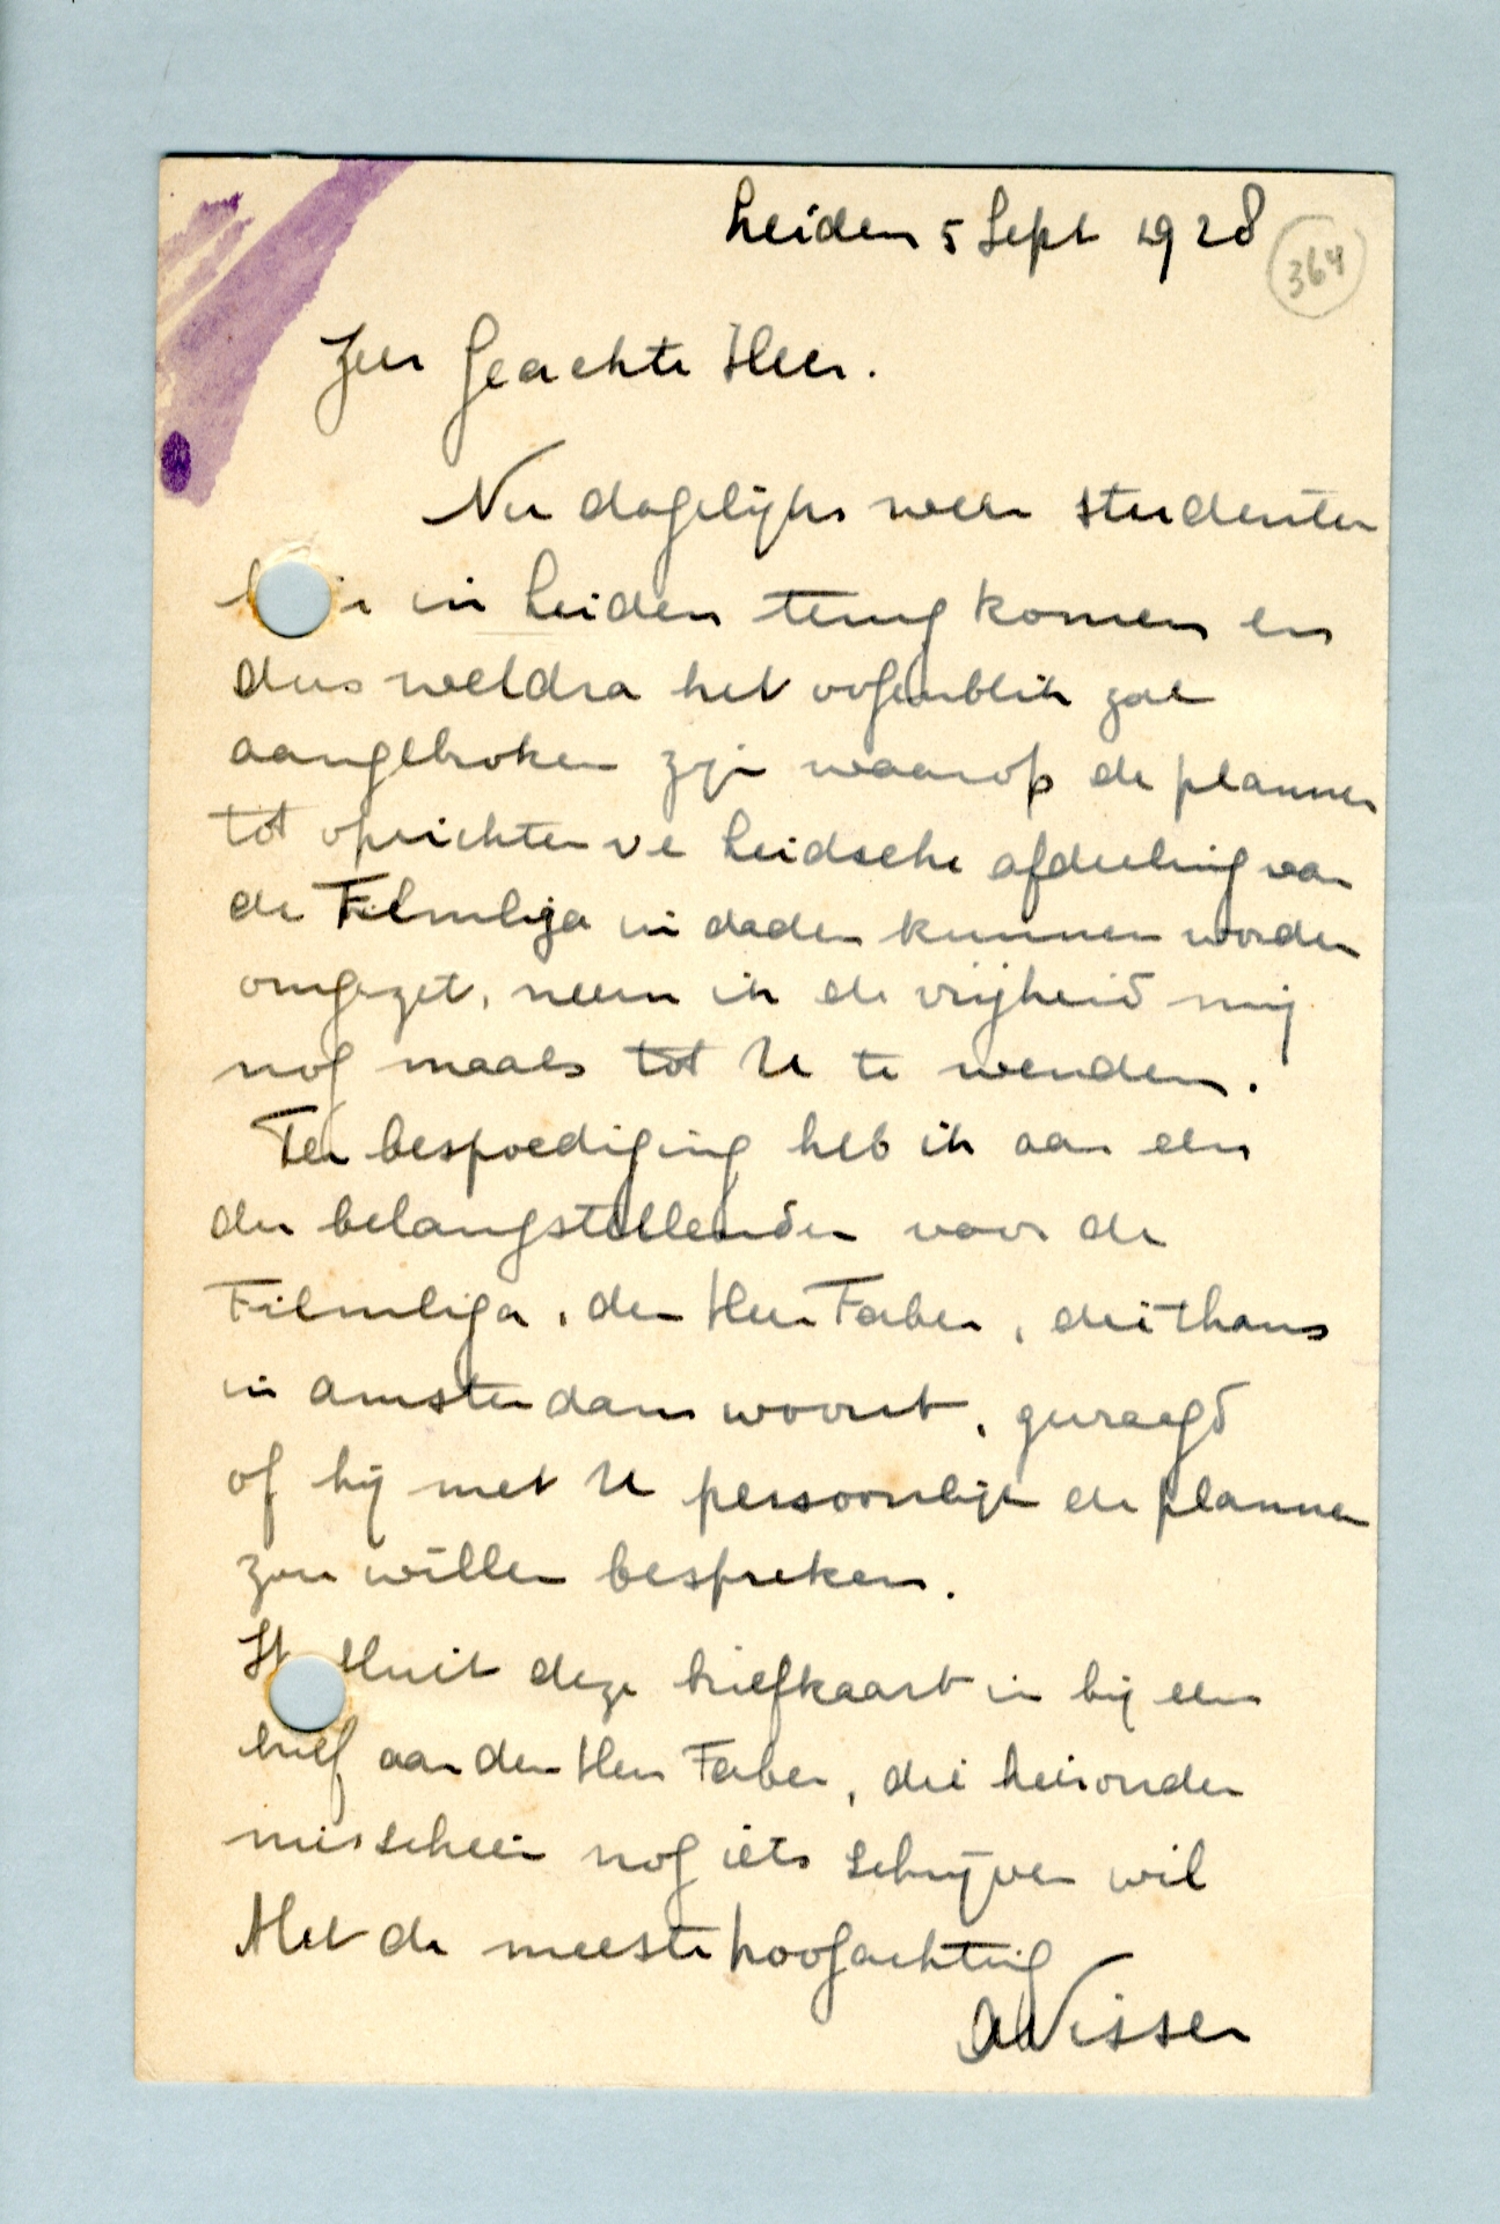 Leiden 5 Sept 1928
364
Zeer Geachte Heer.
Nu dagelijks weer studenten
hier in Leiden terug komen en
dus weldra het oogenblik zal
aangebroken zijn waarop de plannen
tot oprichten v e Leidsche afdeeling van
de Filmliga in daden kunnen worden
omgezet, neem ik de vrijheid mij
nog maals tot U te wenden.
Ter bespoediging heb ik aan een
der belangstellenden voor de
Filmliga, den Heer Faber, die thans
in Amsterdam woont, gevraagd
of hij met U persoonlijk de plannen
zou willen bespreken.
Ik sluit deze briefkaart in bij een
brief aan den Heer Faber, die hieronder
misschien nog iets schrijven wil
Met de meeste hoogachting
AVisser